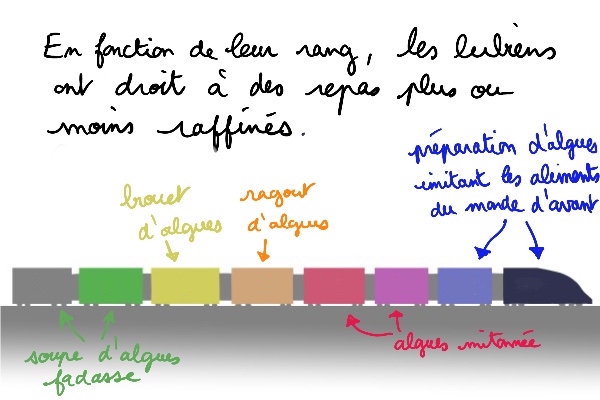 En fonction de leur rang, les lubiens
ont droit à des repas plus ou
moins raffinés.
préparation d'algues
imitant les aliments
du monde d'avant
brouet
d'algues
ragout
d'algues
soupe d'algues
fadasse
algues mitonnée